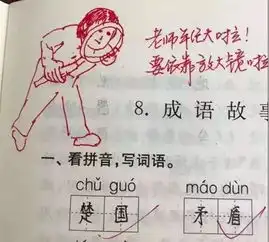 老师年纪大啦!
要依靠放大镜啦
8. 成 语 故 事
一、看拼音,写词语。
chǔ guó    máo dùn
楚 国    矛 盾